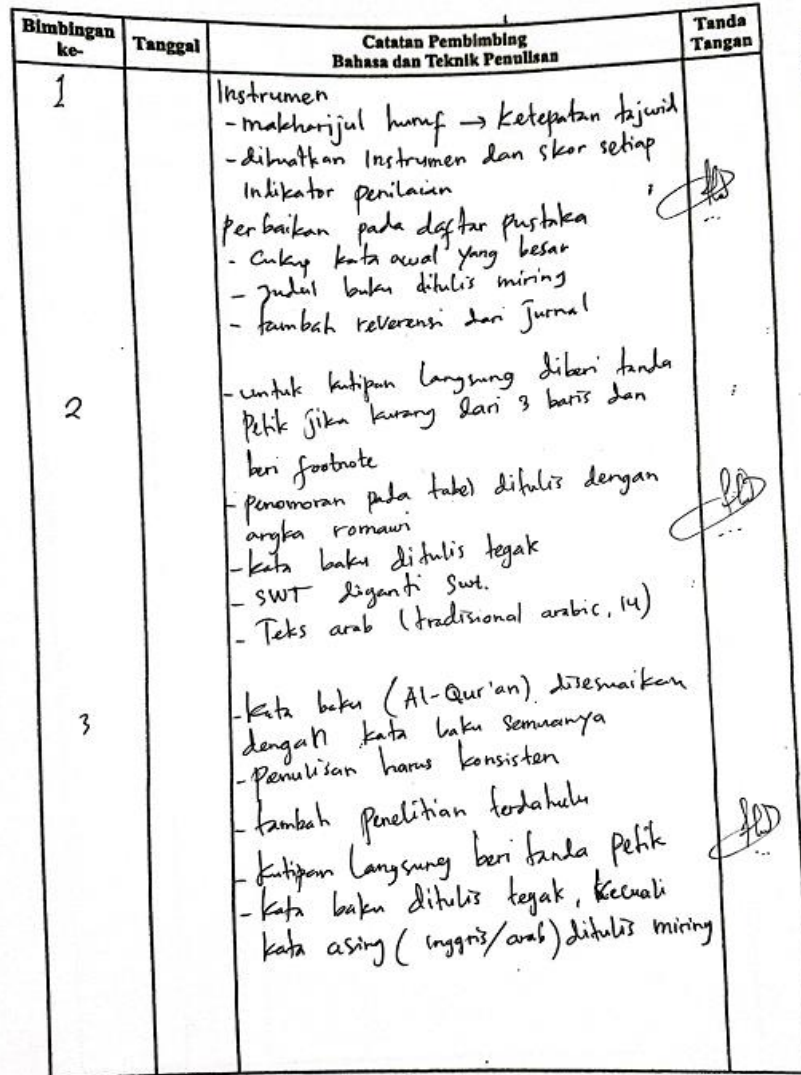 Bimbingan ke-
Tanggal
Catatan Pembimbing
Bahasa dan Teknik Penulisan
Tanda Tangan
1
Instrumen
- makharijul huruf → Ketepatan tajwid
- dibuatkan Instrumen dan skor setiap
Indikator penilaian
Perbaikan pada daftar pustaka
- Cukup kata awal yang besar
- Judul buku ditulis miring
- tambah reverensi dari Jurnal
2
- untuk kutipan langsung diberi tanda
Petik jika kurang dari 3 baris dan
beri footnote
- penomoran pada tabel ditulis dengan
angka romawi
- kata baku ditulis tegak
- SWT diganti Swt.
- Teks arab (tradisional arabic, 14)
3
- kata baku (Al-Qur'an) disesuaikan
dengan kata baku semuanya
- Penulisan harus konsisten
- tambah Penelitian terdahulu
- kutipan langsung beri tanda Petik
- kata baku ditulis tegak, kecuali
kata asing (inggris/arab) ditulis miring